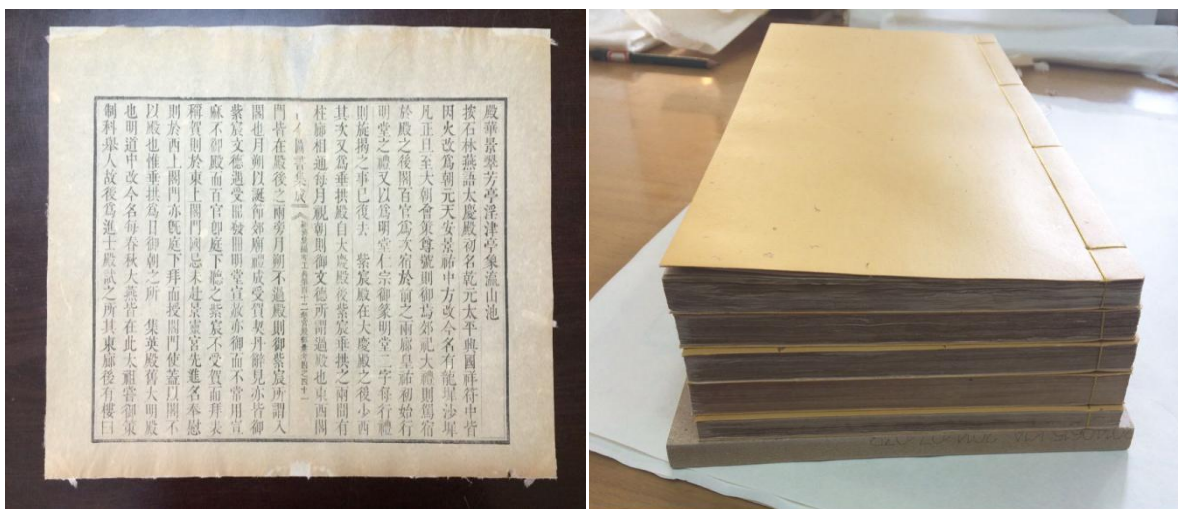 殿華景翠芳亭津亭象山池
按石林燕語太慶殿初名乾元太平興國祥符中皆
因火改爲朝元天安景祐中方改今名有龍墀沙墀
凡正旦至大朝會策尊號則御焉郊祀大禮則駕宿
於殿之後閣百官爲次宿於前之兩廊皇祐初始行
明堂之禮又以爲明堂仁宗御篆明堂二字每行禮
則旋揭之事已復去　紫宸殿在大慶殿之後少西
其次又爲垂拱殿自大慶殿後紫宸垂拱之兩間有
柱廊相通每月視朝則御文德所謂過殿也東西閣
圖書集成
門皆在殿後之兩旁月朔不過殿則御紫宸所謂入
閣也月朔以誕節郊廟禮成受賀契丹辭見亦皆御
紫宸文德遇受冊發冊明堂宣赦亦御而不常用宣
麻不御殿而百官卽庭下聽之紫宸不受賀而拜表
稱賀則於東上閤門國忌未赴景靈宮先進名奉慰
則於西上閤門亦旣庭下拜而授閤門使蓋以閤不
以殿也惟垂拱爲日御朝之所　集英殿舊大明殿
也明道中改今名每春秋大燕皆在此太祖嘗御策
制科舉人故後爲進士殿試之所其東廊後有樓曰